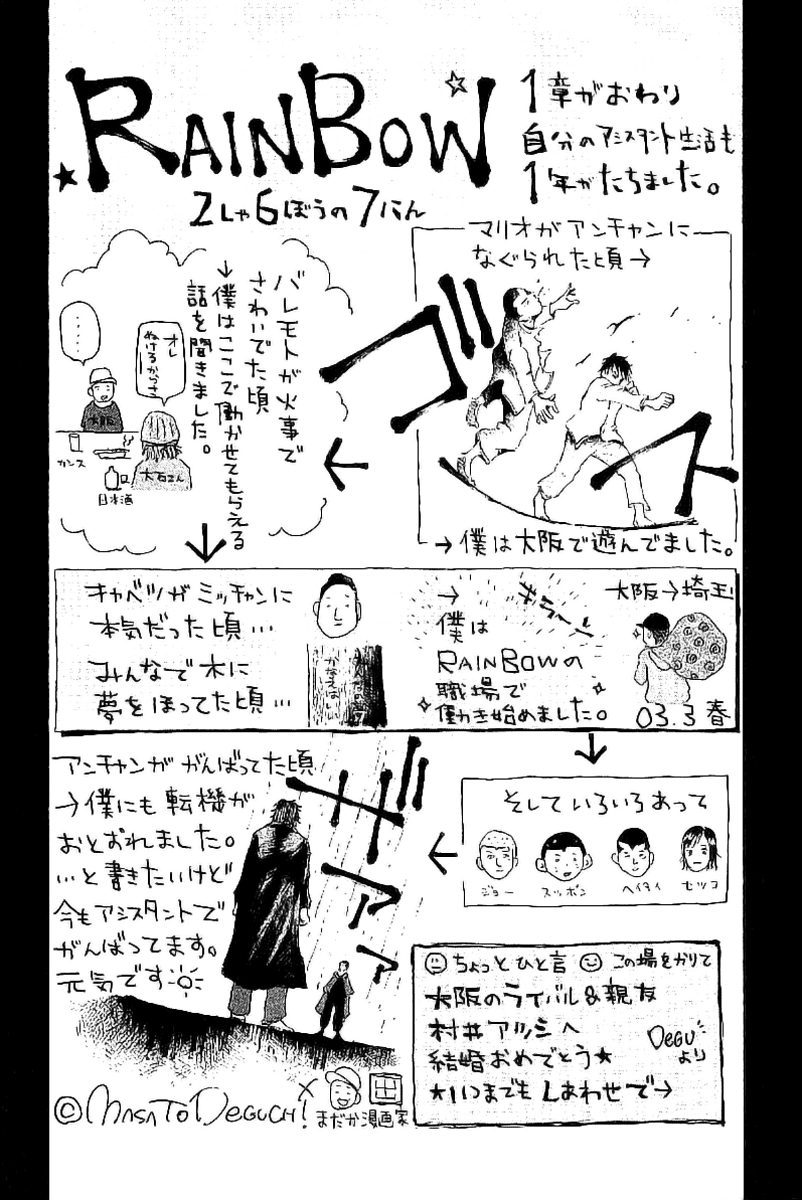 RAINBOW
2しゃ6ぼうの7にん
1章がおわり
自分のアシスタント生活も
1年がたちました。
マリオがアンチャンに
なぐられた頃→
ゴッ
スト
→僕は大阪で遊んでました。
バレモトが火事で
さわいでた頃
→僕はここで働かせてもらえる
話を聞きました。
オレ
ぬけるからさ
・・・・
大阪
カンヌ
日本酒
大石さん
キャベツがミッチャンに
本気だった頃…
みんなで木に
夢をほってた頃…
→
僕は
RAINBOWの
職場で
働き始めました。
キラーン
大阪→埼玉
03.3春
そしていろいろあって
ジョー
スッポン
ヘイタイ
セツコ
アンチャンががんばってた頃
→僕にも転機が
おとずれました。
…と書きたいけど
今もアシスタントで
がんばってます。
元気です
ザァァ
ちょっとひと言 この場をかりて
大阪のライバル&親友
村井アツシへ
結婚おめでとう★
★いつまでもしあわせで→
DEGUより
©MASATO DEGUCHI!
×
出
まだか漫画家